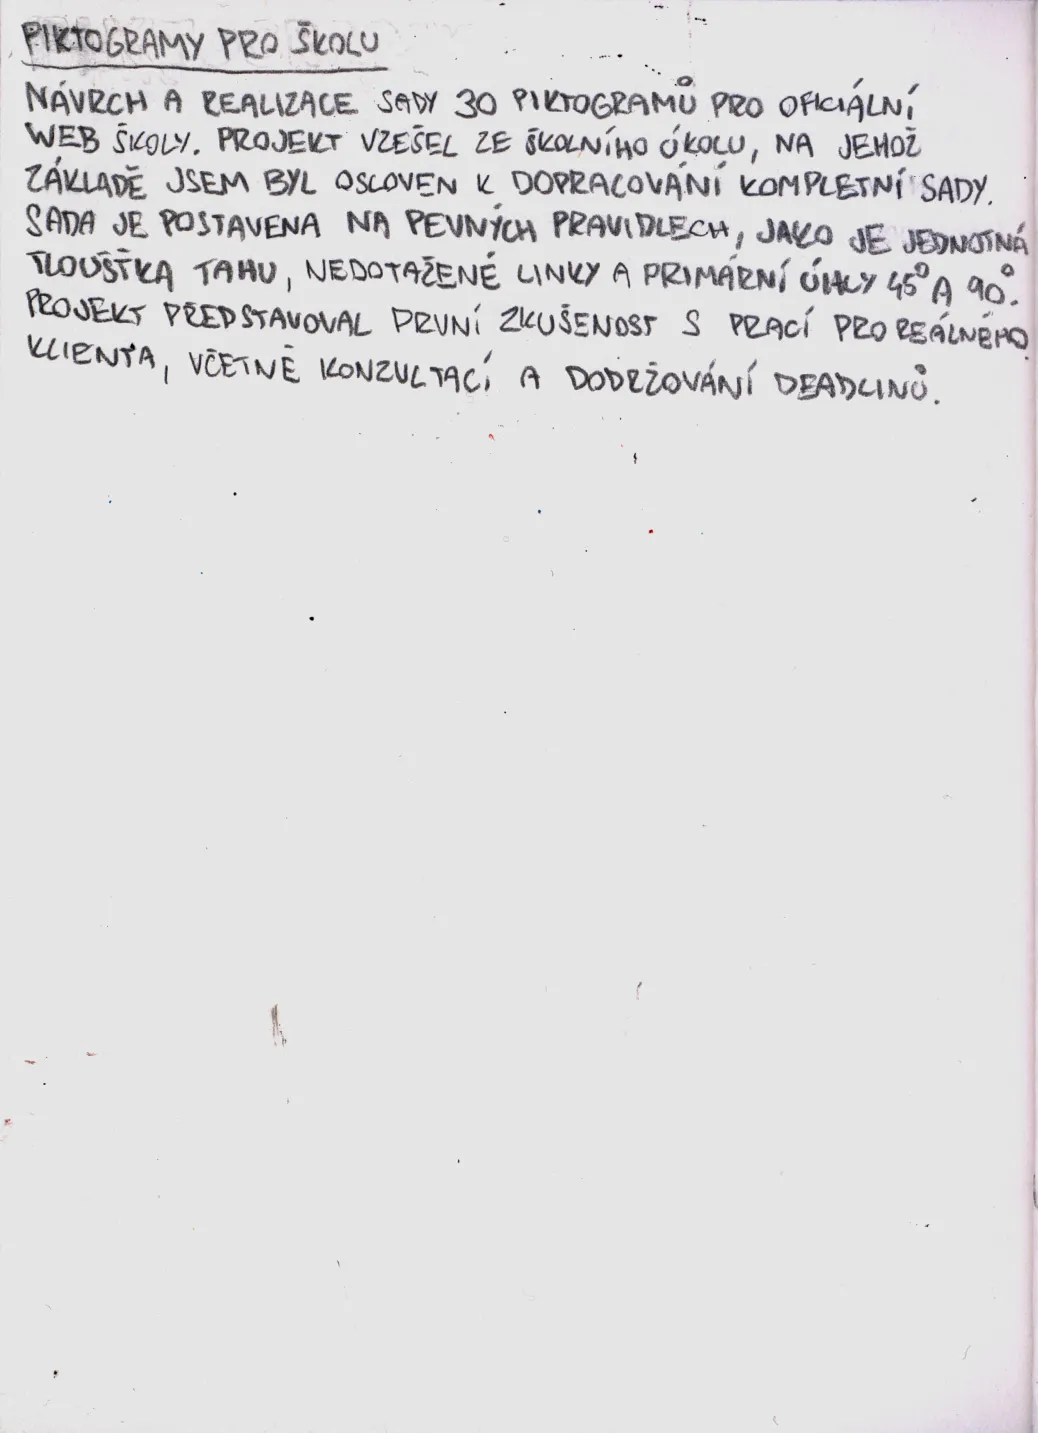 PIKTOGRAMY PRO ŠKOLU
NÁVRCH A REALIZACE SADY 30 PIKTOGRAMŮ PRO OFICIÁLNÍ
WEB ŠKOLY. PROJEKT VZEŠEL ZE ŠKOLNÍHO ÚKOLU, NA JEHOŽ
ZÁKLADĚ JSEM BYL OSLOVEN K DOPRACOVÁNÍ KOMPLETNÍ SADY.
SADA JE POSTAVENA NA PEVNÝCH PRAVIDLECH, JAKO JE JEDNOTNÁ
TLOUŠŤKA TAHU, NEDOTAŽENÉ LINKY A PRIMÁRNÍ ÚHLY 45° A 90°.
PROJEKT PŘEDSTAVOVAL PRVNÍ ZKUŠENOST S PRACÍ PRO REÁLNÉHO
KLIENTA, VČETNĚ KONZULTACÍ A DODRŽOVÁNÍ DEADLINŮ.